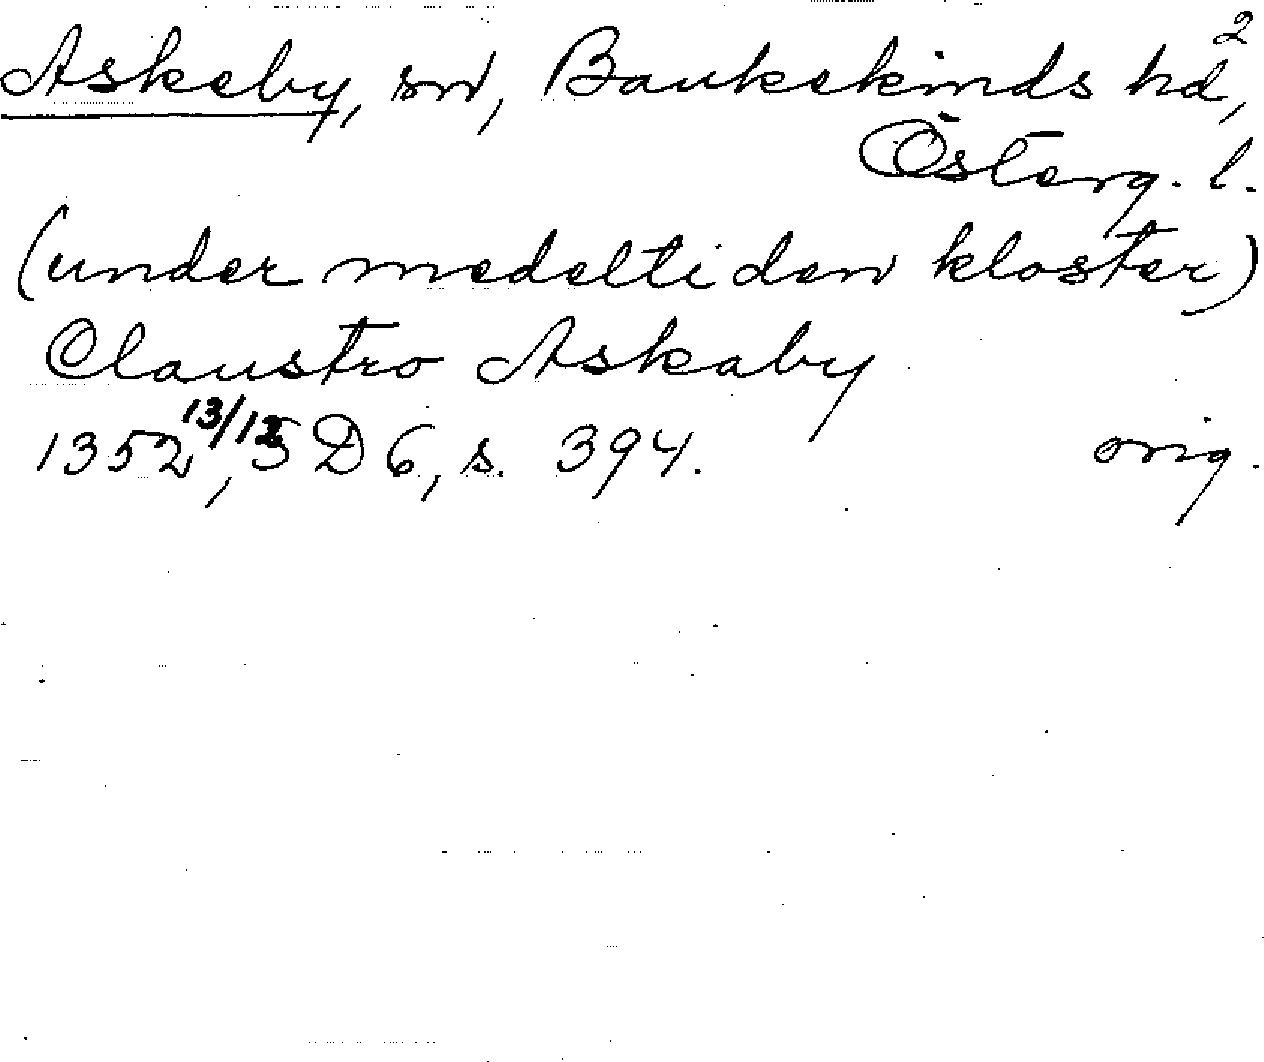 Askeby, sn, Bankekinds hd, 2
Österg. l.
(under medeltiden kloster)
Claustro Askaby
1352 13/12, SD 6, s. 394. orig.